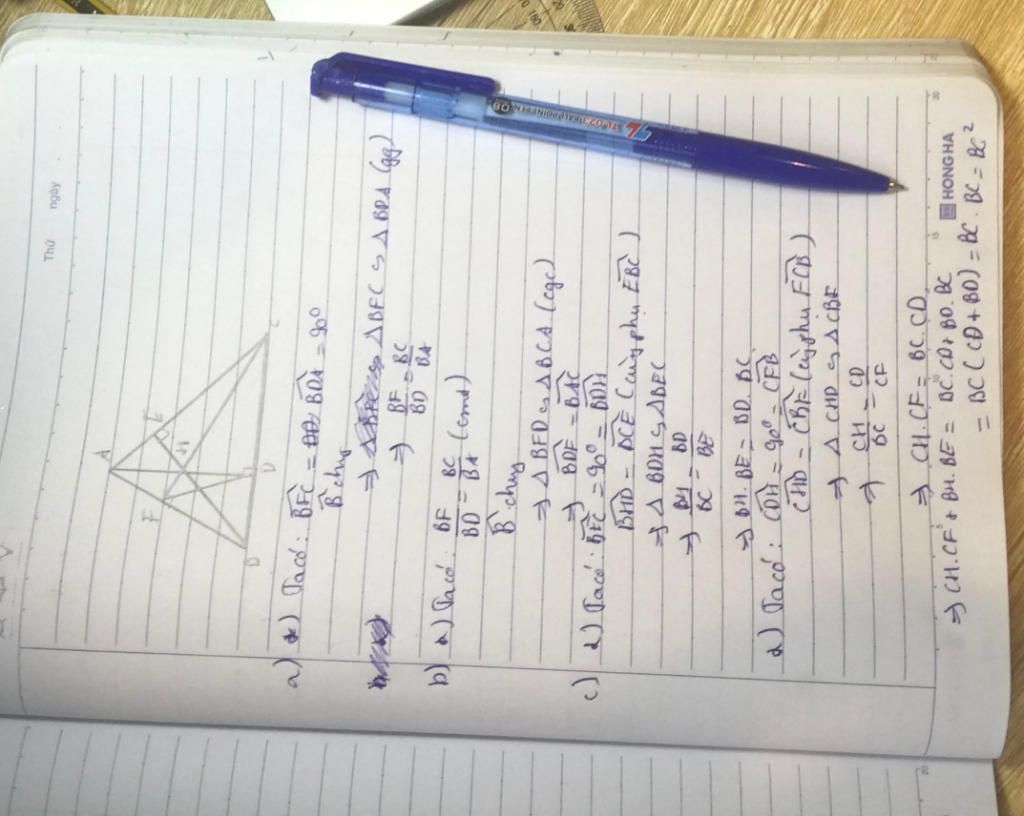 Thứ ngày
A
F
E
H
B
D
C
a) Ta có: BFC = BDA = 90°
B chung
⇒ △BFC ∽ △BDA (gg)
⇒ BF/BD = BC/BA
b) Ta có: BF/BD = BC/BA (cmt)
B chung
⇒ △BFD ∽ △BCA (cgc)
⇒ BDF = BAC
c) 1) Ta có: BEC = 90° = BDH
BHD = DCE (cùng phụ EBC)
⇒ △BDH ∽ △BEC
⇒ BH/BC = BD/BE
⇒ BH.BE = BD.BC
2) Ta có: CDH = 90° = CFB
CHD = CBF (cùng phụ FCB)
⇒ △CHD ∽ △CBF
⇒ CH/BC = CD/CF
⇒ CH.CF = BC.CD
⇒ CH.CF + BH.BE = BC.CD + BD.BC
= BC(CD + BD) = BC.BC = BC²
HONG HA
08